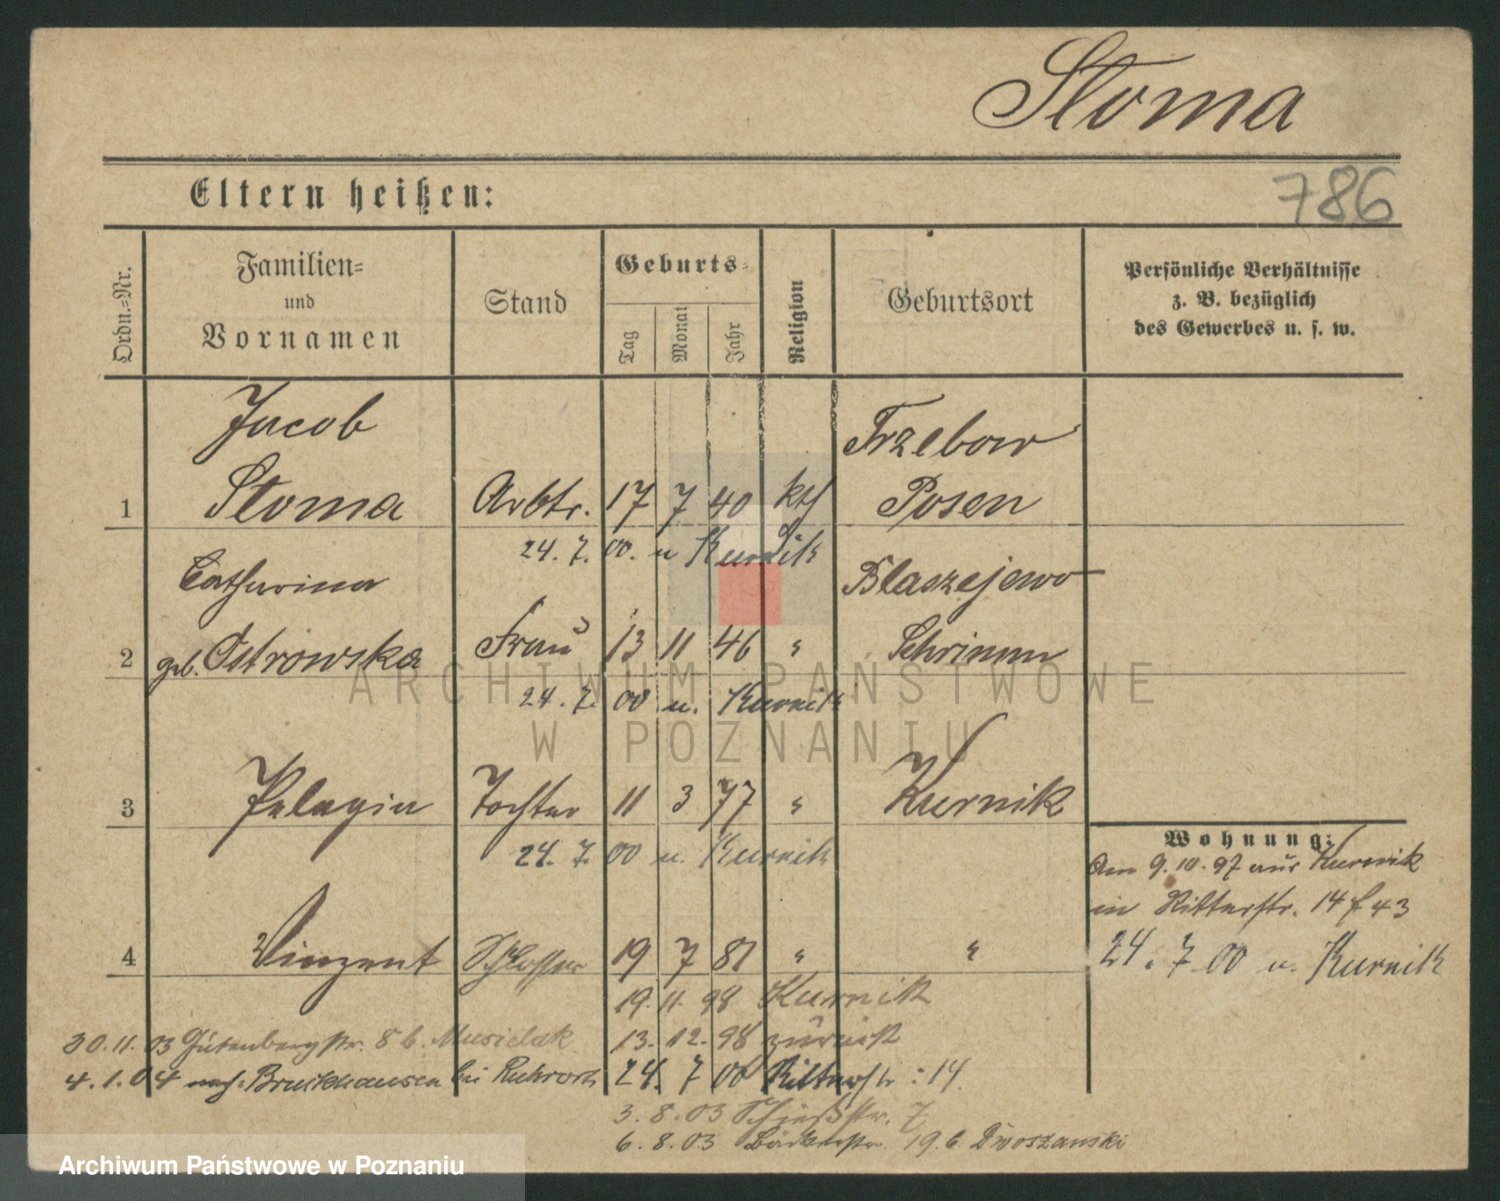 Stoma
Eltern heißen:
786
Ordn.=Nr.
Familien=
und
Vornamen
Stand
Geburts=
Tag
Monat
Jahr
Religion
Geburtsort
Persönliche Verhältnisse
z. B. bezüglich
des Gewerbes u. s. w.
Jacob
Trzebow
1 Stoma Arbtr. 17 7 40 kth Posen
24. 7. 00. u Kurnik
Catharina
Blaszejewo
2 geb. Ostrowska Frau 13 11 46 " Schrimm
24. 7. 00 u. Kurnik
3 Pelagia Tochter 11 3 77 " Kurnik
24. 7. 00 u. Kurnik
Wohnung:
Am 9.10.97 aus Kurnik
in Ritterstr. 14 f 43
24. 7. 00 u. Kurnik
4 Vinzent Schlosser 19 7 81 " "
19. 11. 98 Kurnik
13. 12. 98 zurück
24. 7 00 Ritterstr : 14.
30.11.03 Gutenbergstr. 8 b. Musielak
4.1.04 nach Bruckhausen bei Ruhrort
3. 8. 03 Schießstr. 7
6. 8. 03 Bäckerstr 19 b. Dwoszanski
ARCHIWUM PAŃSTWOWE
W POZNANIU
Archiwum Państwowe w Poznaniu